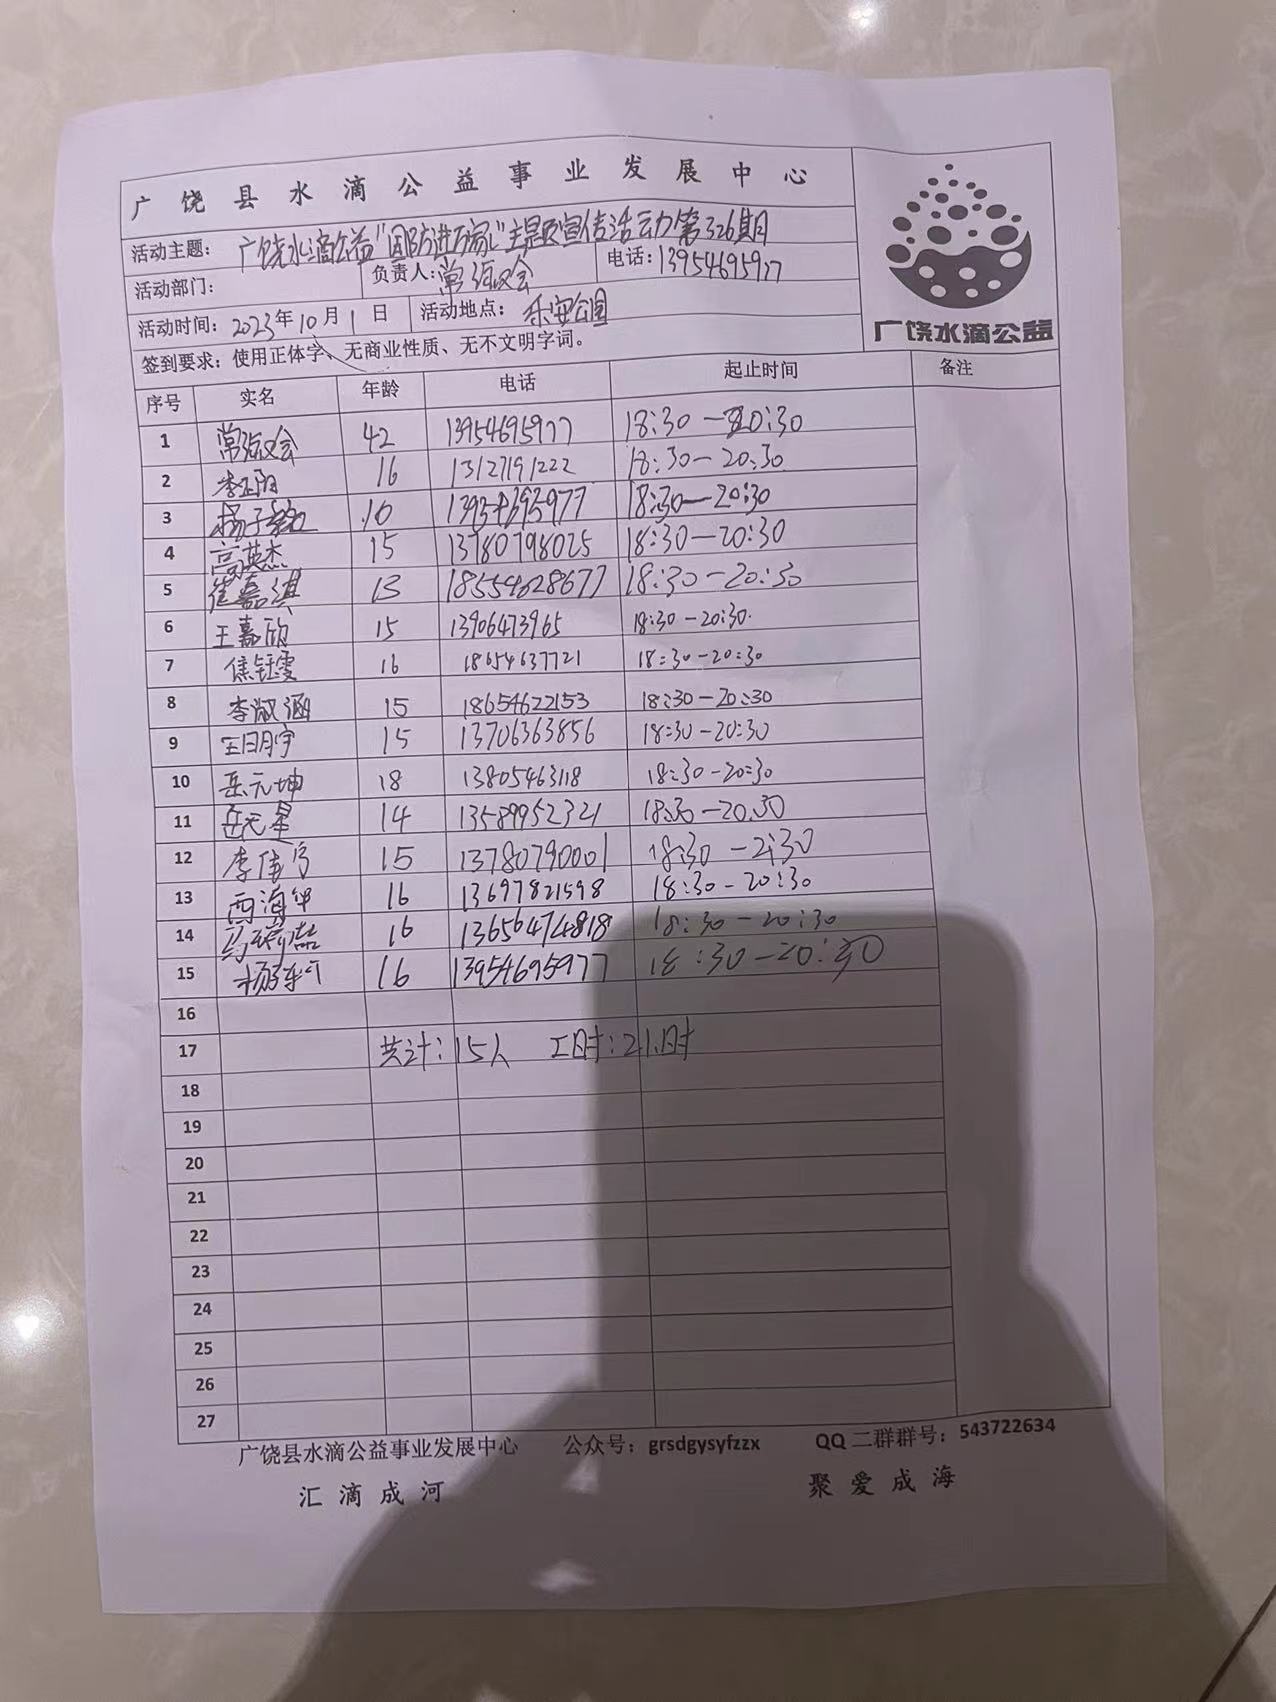 广饶县水滴公益事业发展中心
活动主题：广饶水滴公益"国防进万家"主题宣传活动第326期
活动部门： 负责人：常 会 电话：13954695977
活动时间：2023年10月1日 活动地点：乐安公园
广饶水滴公益
签到要求：使用正体字、无商业性质、无不文明字词。
序号 实名 年龄 电话 起止时间 备注
1 常 会 42 13954695977 18:30—20:30
2 李正阳 16 13127191222 18:30—20:30
3 杨子 18:30—20:30
4 高英杰 15 13780798025 18:30—20:30
5 崔嘉淇 13 18554628677 18:30—20:30
6 王嘉欣 15 13906473965 18:30-20:30
7 焦钰雯 16 18654637721 18:30-20:30
8 李淑涵 15 18654622153 18:30-20:30
9 王明宇 15 13706363856 18:30-20:30
10 岳元坤 18 13805463118 18:30-20:30
11 岳元星 14 13589952321 18:30—20:30
12 李佳 15 13780790001 18:30 — 2:30
13 西海 16 13697821598 18:30-20:30
14 16 13656474818 18:30-20:30
15 杨 16 13954695977 18:30-20:30
16
17 共计：15人 工时：21时
18
19
20
21
22
23
24
25
26
27
广饶县水滴公益事业发展中心 公众号：grsdgysyfzzx QQ二群群号：543722634
汇滴成河 聚爱成海